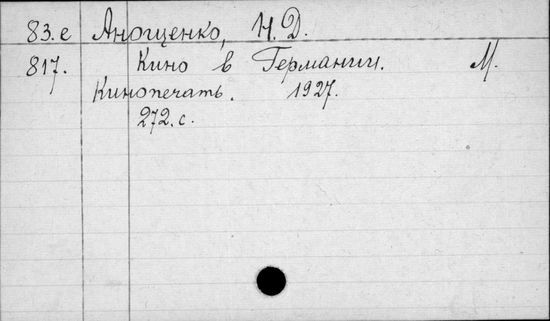 83.е Анощенко, Н.Д.
817. Кино в Германии. М.
Кинопечать. 1927.
272.с.